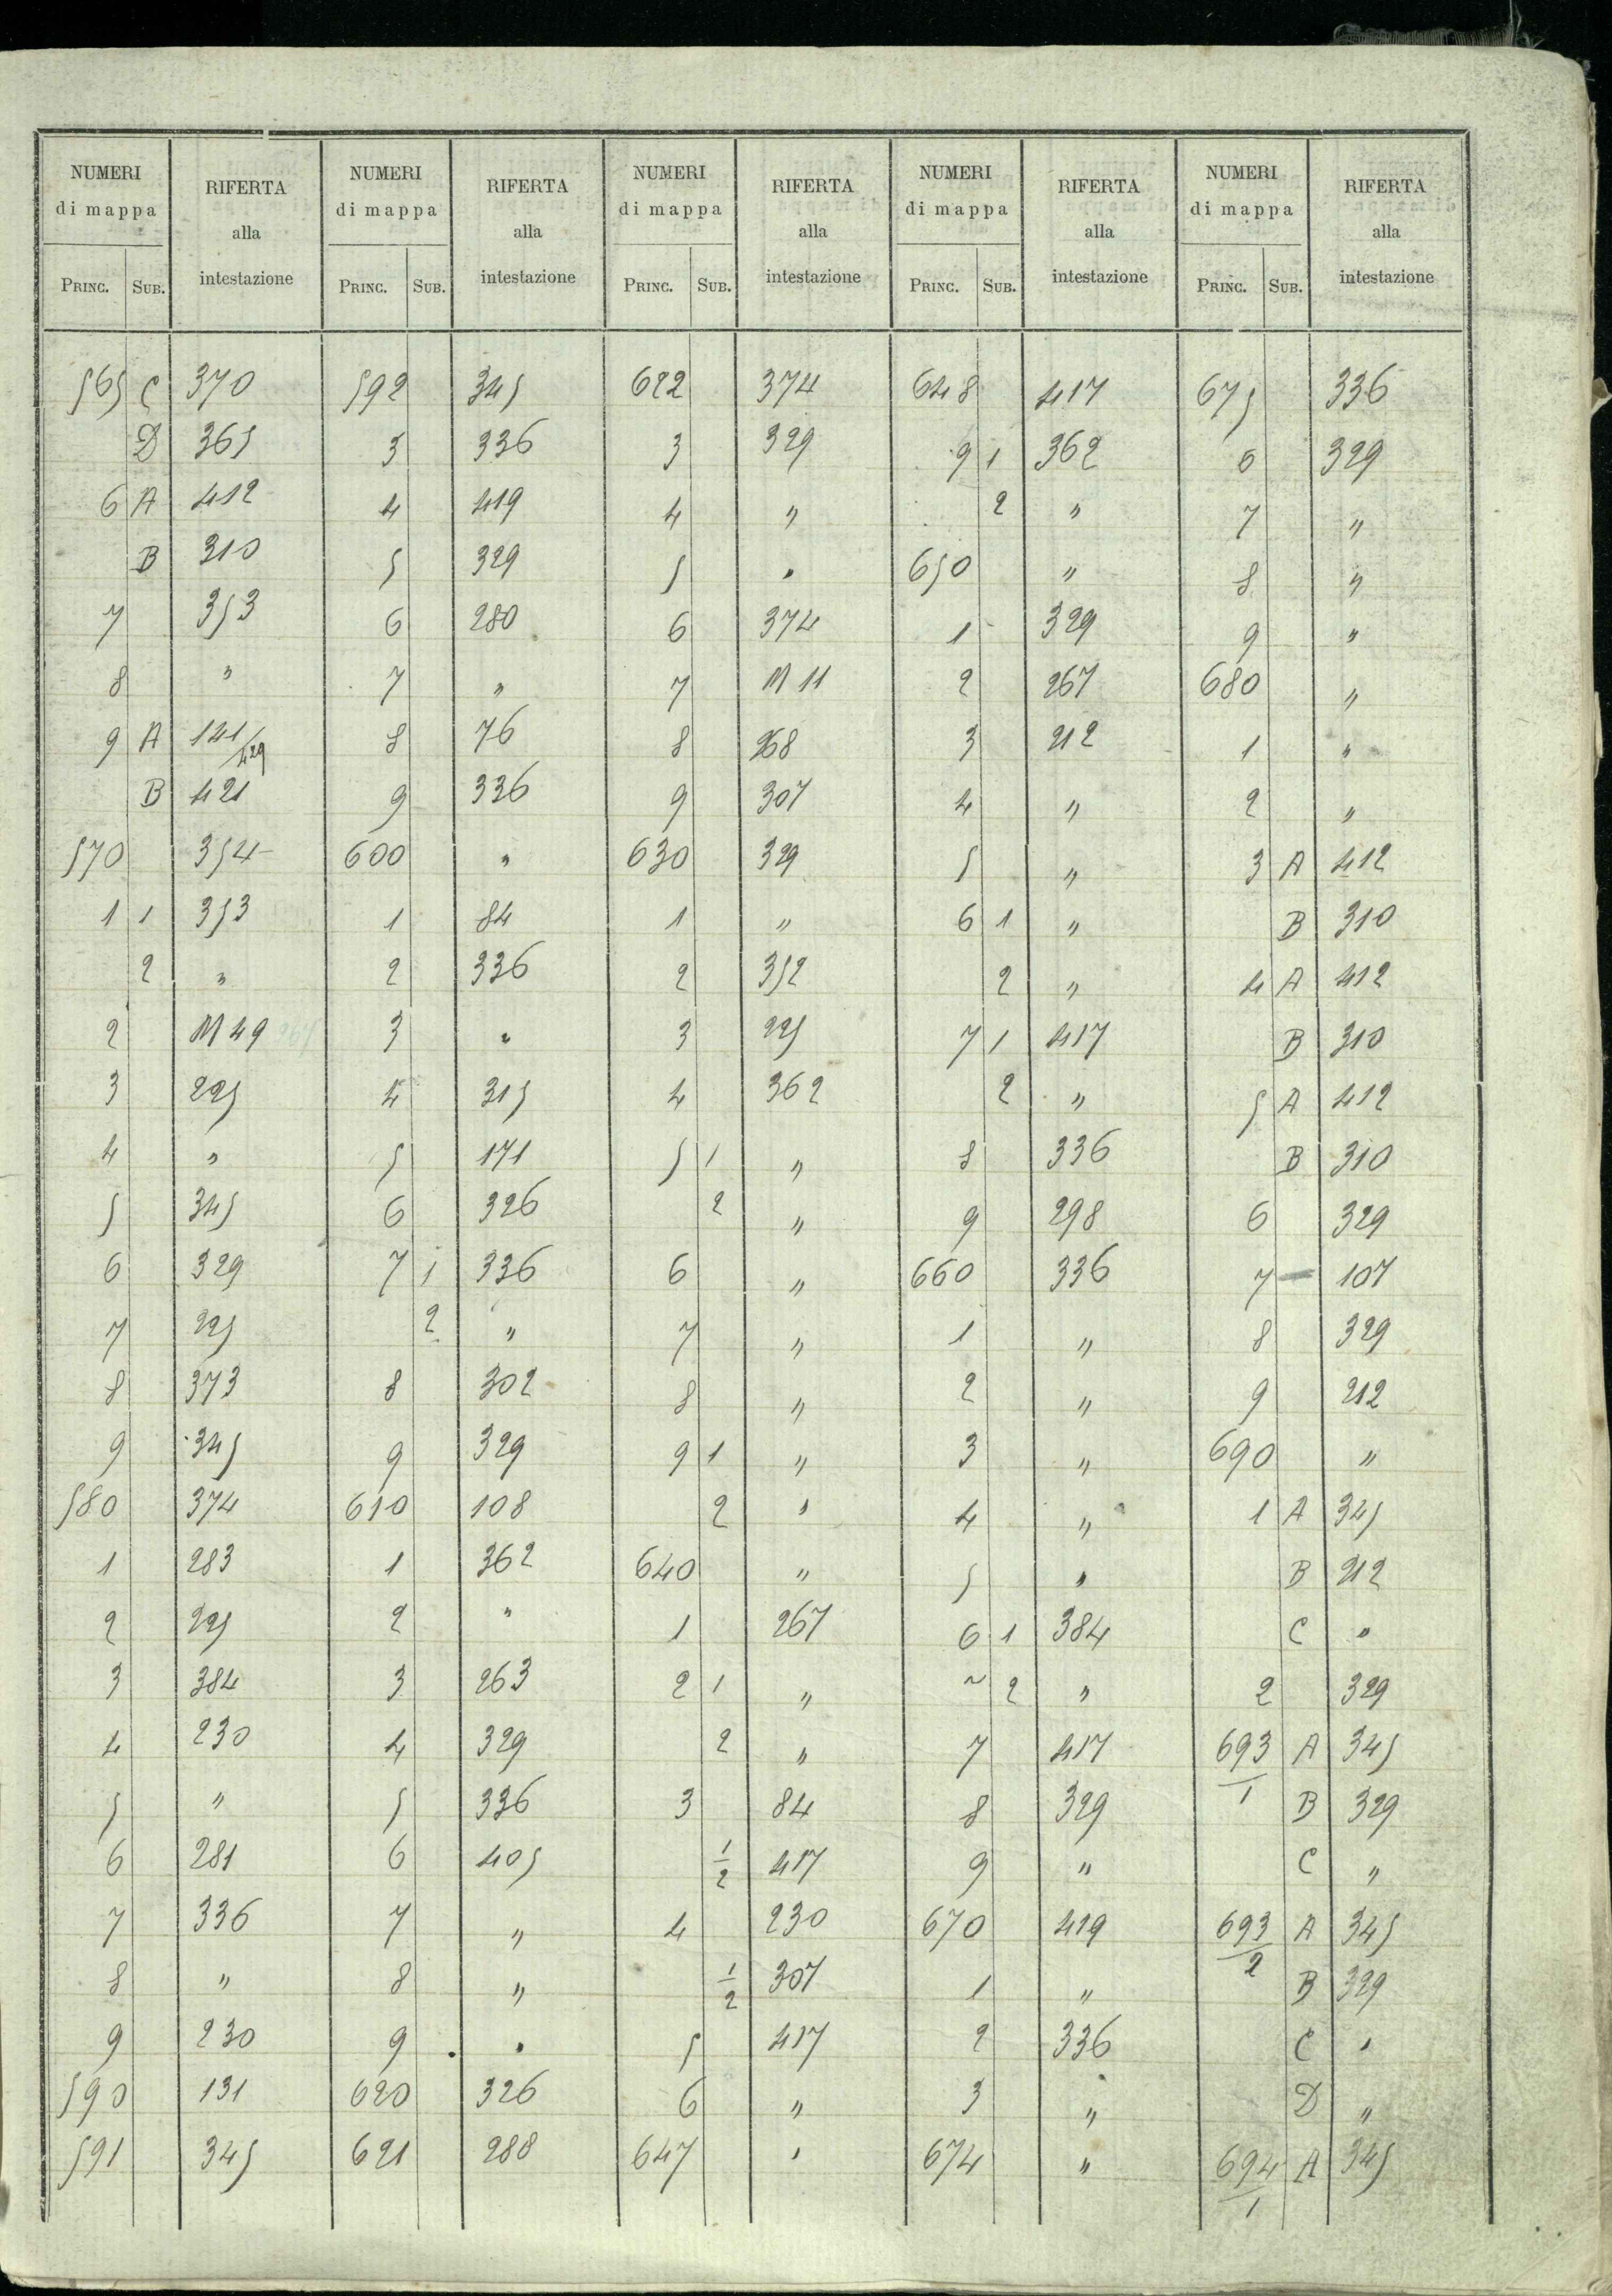 NUMERI di mappa RIFERTA alla intestazione NUMERI di mappa RIFERTA alla intestazione NUMERI di mappa RIFERTA alla intestazione NUMERI di mappa RIFERTA alla intestazione NUMERI di mappa RIFERTA alla intestazione
PRINC. SUB. PRINC. SUB. PRINC. SUB. PRINC. SUB. PRINC. SUB.
565 C 370 592 345 622 374 648 417 675 336
D 365 3 336 3 329 9 1 362 6 329
6 A 412 4 419 4 " 2 " 7 "
B 310 5 329 5 " 650 " 8 "
7 353 6 280 6 374 1 329 9 "
8 " 7 " 7 M 11 2 267 680 "
9 A 141/429 8 76 8 268 3 212 1 "
B 421 9 336 9 307 4 " 2 "
570 354 600 " 630 329 5 " 3 A 412
1 1 353 1 84 1 " 6 1 " B 310
2 " 2 336 2 352 2 " 4 A 412
2 M 49 3 " 3 225 7 1 417 B 310
3 225 4 315 4 362 2 " 5 A 412
4 " 5 171 5 1 " 8 336 B 310
5 345 6 326 2 " 9 298 6 329
6 329 7 1 336 6 " 660 336 7 — 107
7 225 2 " 7 " 1 " 8 329
8 373 8 302 8 " 2 " 9 212
9 345 9 329 9 1 " 3 " 690 "
580 374 610 108 2 " 4 " 1 A 345
1 283 1 362 640 " 5 " B 212
2 225 2 " 1 267 6 1 384 C "
3 384 3 263 2 1 " ~ 2 " 2 329
4 230 4 329 2 " 7 417 693/1 A 345
5 " 5 336 3 84 8 329 B 329
6 281 6 405 1/2 417 9 " C "
7 336 7 " 4 230 670 419 693/2 A 345
8 " 8 " 1/2 307 1 " B 329
9 230 9 " 5 417 2 336 C "
590 131 620 326 6 " 3 " D "
591 345 621 288 647 " 674 " 694/1 A 345